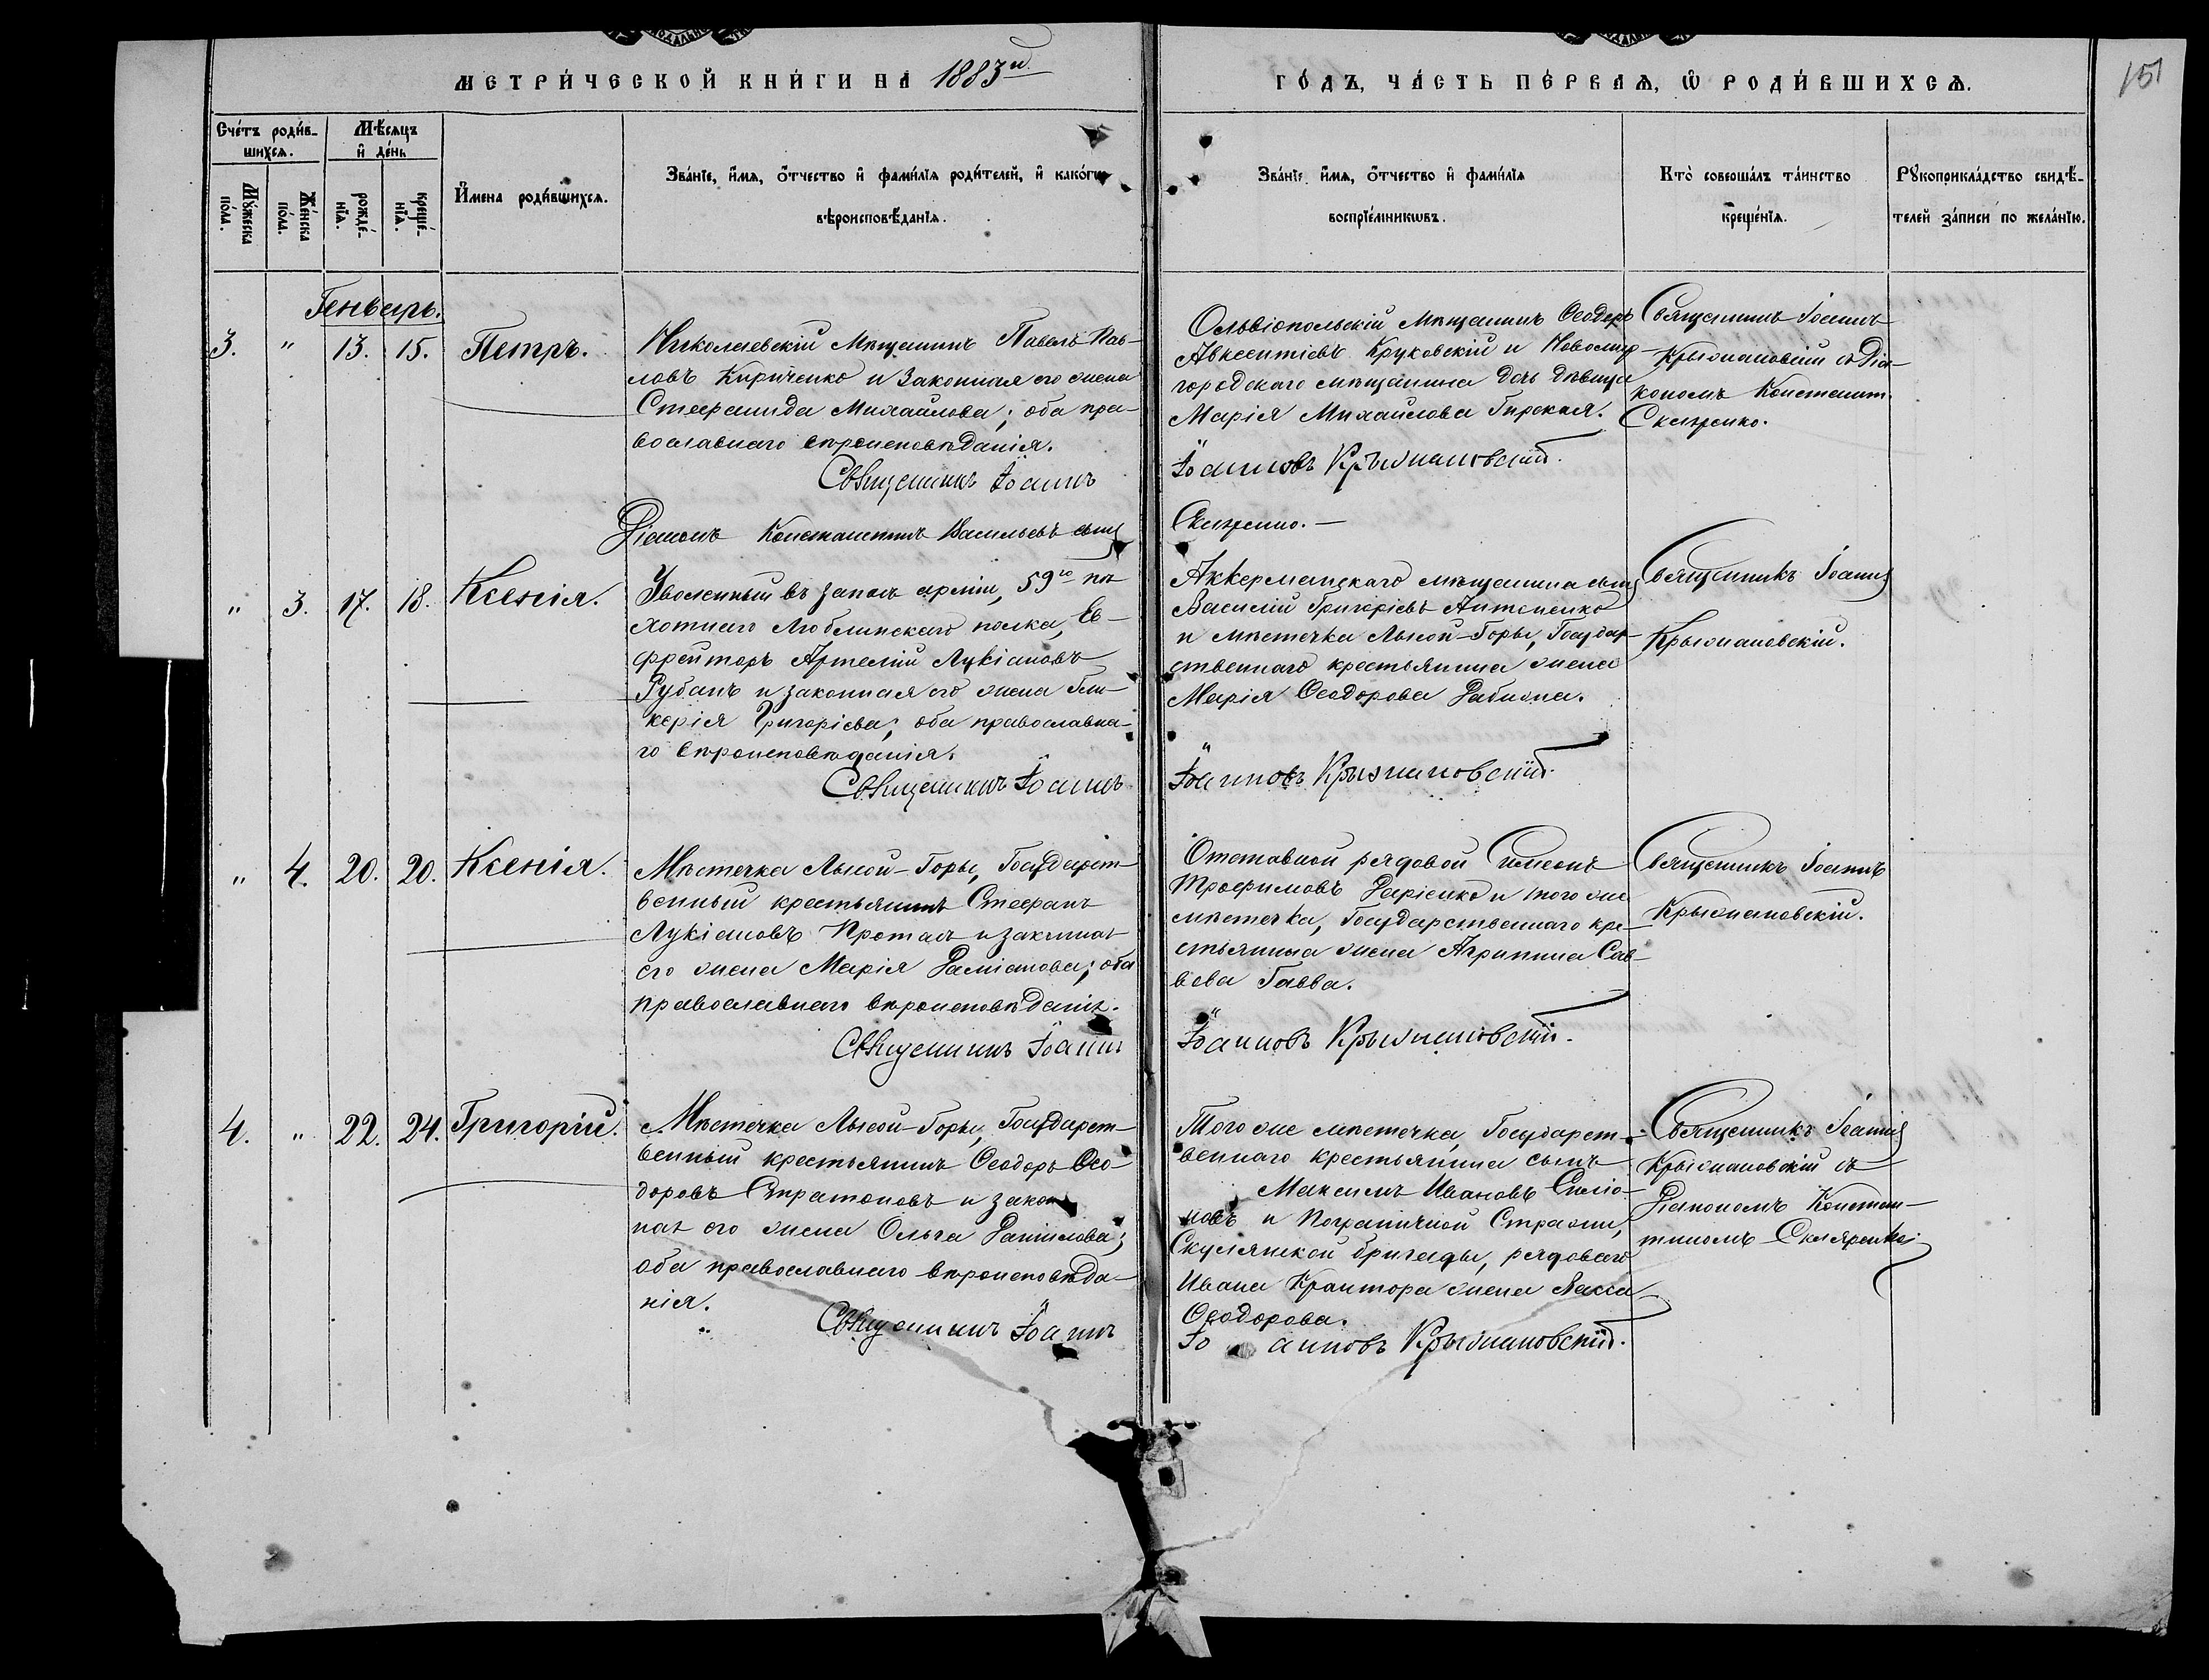 МЕТРИ́ЧЕСКОЙ КНИ́ГИ НА 1883й
ГО́ДЪ, ЧА́СТЬ ПЕ́РВАѦ, Ѡ҆ РОДИ́ВШИХСѦ.
151
Сче́тъ роди́в-
шихсѧ.
Мѣ́сѧцъ
и҆ де́нь
Мꙋ́жеска
по́ла.
Же́нска
по́ла.
рожде́-
нїѧ.
креще́-
нїѧ.
И҆мена роди́вшихсѧ.
Зва́нїе, и҆́мѧ, ѻ҆́тчество и҆ фами́лїѧ роди́телей, и҆ како́гѡ
вѣроисповѣ́данїѧ.
Зва́нїе и҆́мѧ, ѻ҆́тчество и҆ фами́лїѧ
воспрїе́мникѡвъ.
Кто̀ соверша́лъ та́инство
креще́нїѧ.
Рꙋкоприкла́дство свидѣ́-
телей за́писи по жела́нїю.
Генварь.
3. " 13. 15. Петръ.
Николаевскій Мѣщанинъ Павелъ Пав-
ловъ Кириченко и законная его жена
Стефанида Михайлова; оба пра-
вославнаго вѣроисповѣданія.
Священникъ Іоаннъ
Діаконъ Константинъ Васильевъ сынъ
Ольвіопольскій Мѣщанинъ Ѳеодоръ
Авксентіевъ Круковскій и Новомир-
городскаго мѣщанина дочь дѣвица
Марія Михайлова Гирская.
Іоанновъ Крыжановскій.
Скляренко.—
Священникъ Іоаннъ
Крыжановскій съ Діа-
кономъ Констант.
Скляренко.
" 3. 17. 18. Ксенія.
Уволенный въ запасъ арміи, 59го пѣ-
хотнаго Люблинскаго полка, Еф-
фрейторъ Артемій Лукіановъ
Рубанъ и законная его жена Гли-
керія Григорієва; оба православна-
го вѣроисповѣданія.
Священникъ Іоаннъ
Аккерманскаго мѣщанина сынъ
Василій Григорієвъ Антоненко
и мѣстечка Лысой-Горы, Государ-
ственнаго крестьянина жена
Марія Ѳеодорова
Іоанновъ Крыжановскій.
Священникъ Іоаннъ
Крыжановскій.
" 4. 20. 20. Ксенія.
Мѣстечка Лысой-Горы, Государст-
венный крестьянинъ Стефанъ
Лукіановъ и законная
его жена Марія Даміанова; оба
православнаго вѣроисповѣданія.
Священникъ Іоаннъ
Отставной рядовой Симеонъ
Трофимовъ Дарієнко и того же
мѣстечка, Государственнаго кре-
стьянина жена Агрипина Сав-
вева Гавва.
Іоанновъ Крыжановскій.
Священникъ Іоаннъ
Крыжановскій.
4. " 22. 24. Григорій.
Мѣстечка Лысой-Горы, Государст-
венный крестьянинъ Ѳеодоръ Ѳео-
доровъ Стратоновъ и закон-
ная его жена Ольга Даніилова;
оба православнаго вѣроисповѣда-
нія.
Священникъ Іоаннъ
Того же мѣстечка, Государст-
веннаго крестьянина сынъ
Максимъ Ивановъ
и Пограничной Стражи,
Скулянской бригады, рядоваго
Ивана Крантора жена Васса
Ѳеодорова.
Іоанновъ Крыжановскій.
Священникъ Іоаннъ
Крыжановскій съ
Діакономъ Констан-
тиномъ Скляренко